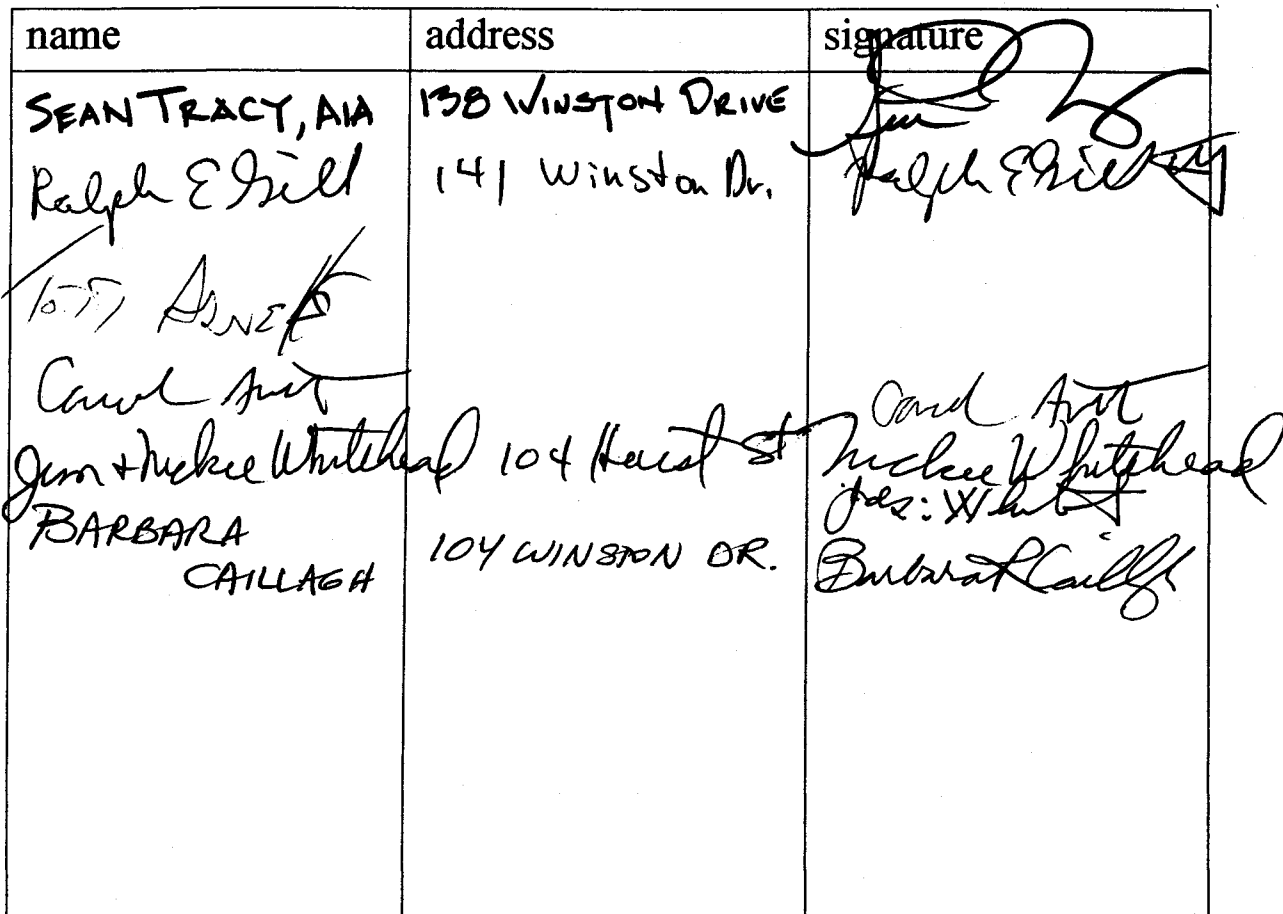 name address signature
SEAN TRACY, AIA 138 WINSTON DRIVE
Ralph E Gill 141 Winston Dr. Ralph E Gill
Carol Carol
Jim + Mickie Whitehead 104 St Mickie Whitehead
BARBARA
CAILLAGH 104 WINSTON DR. Barbara R Caillagh